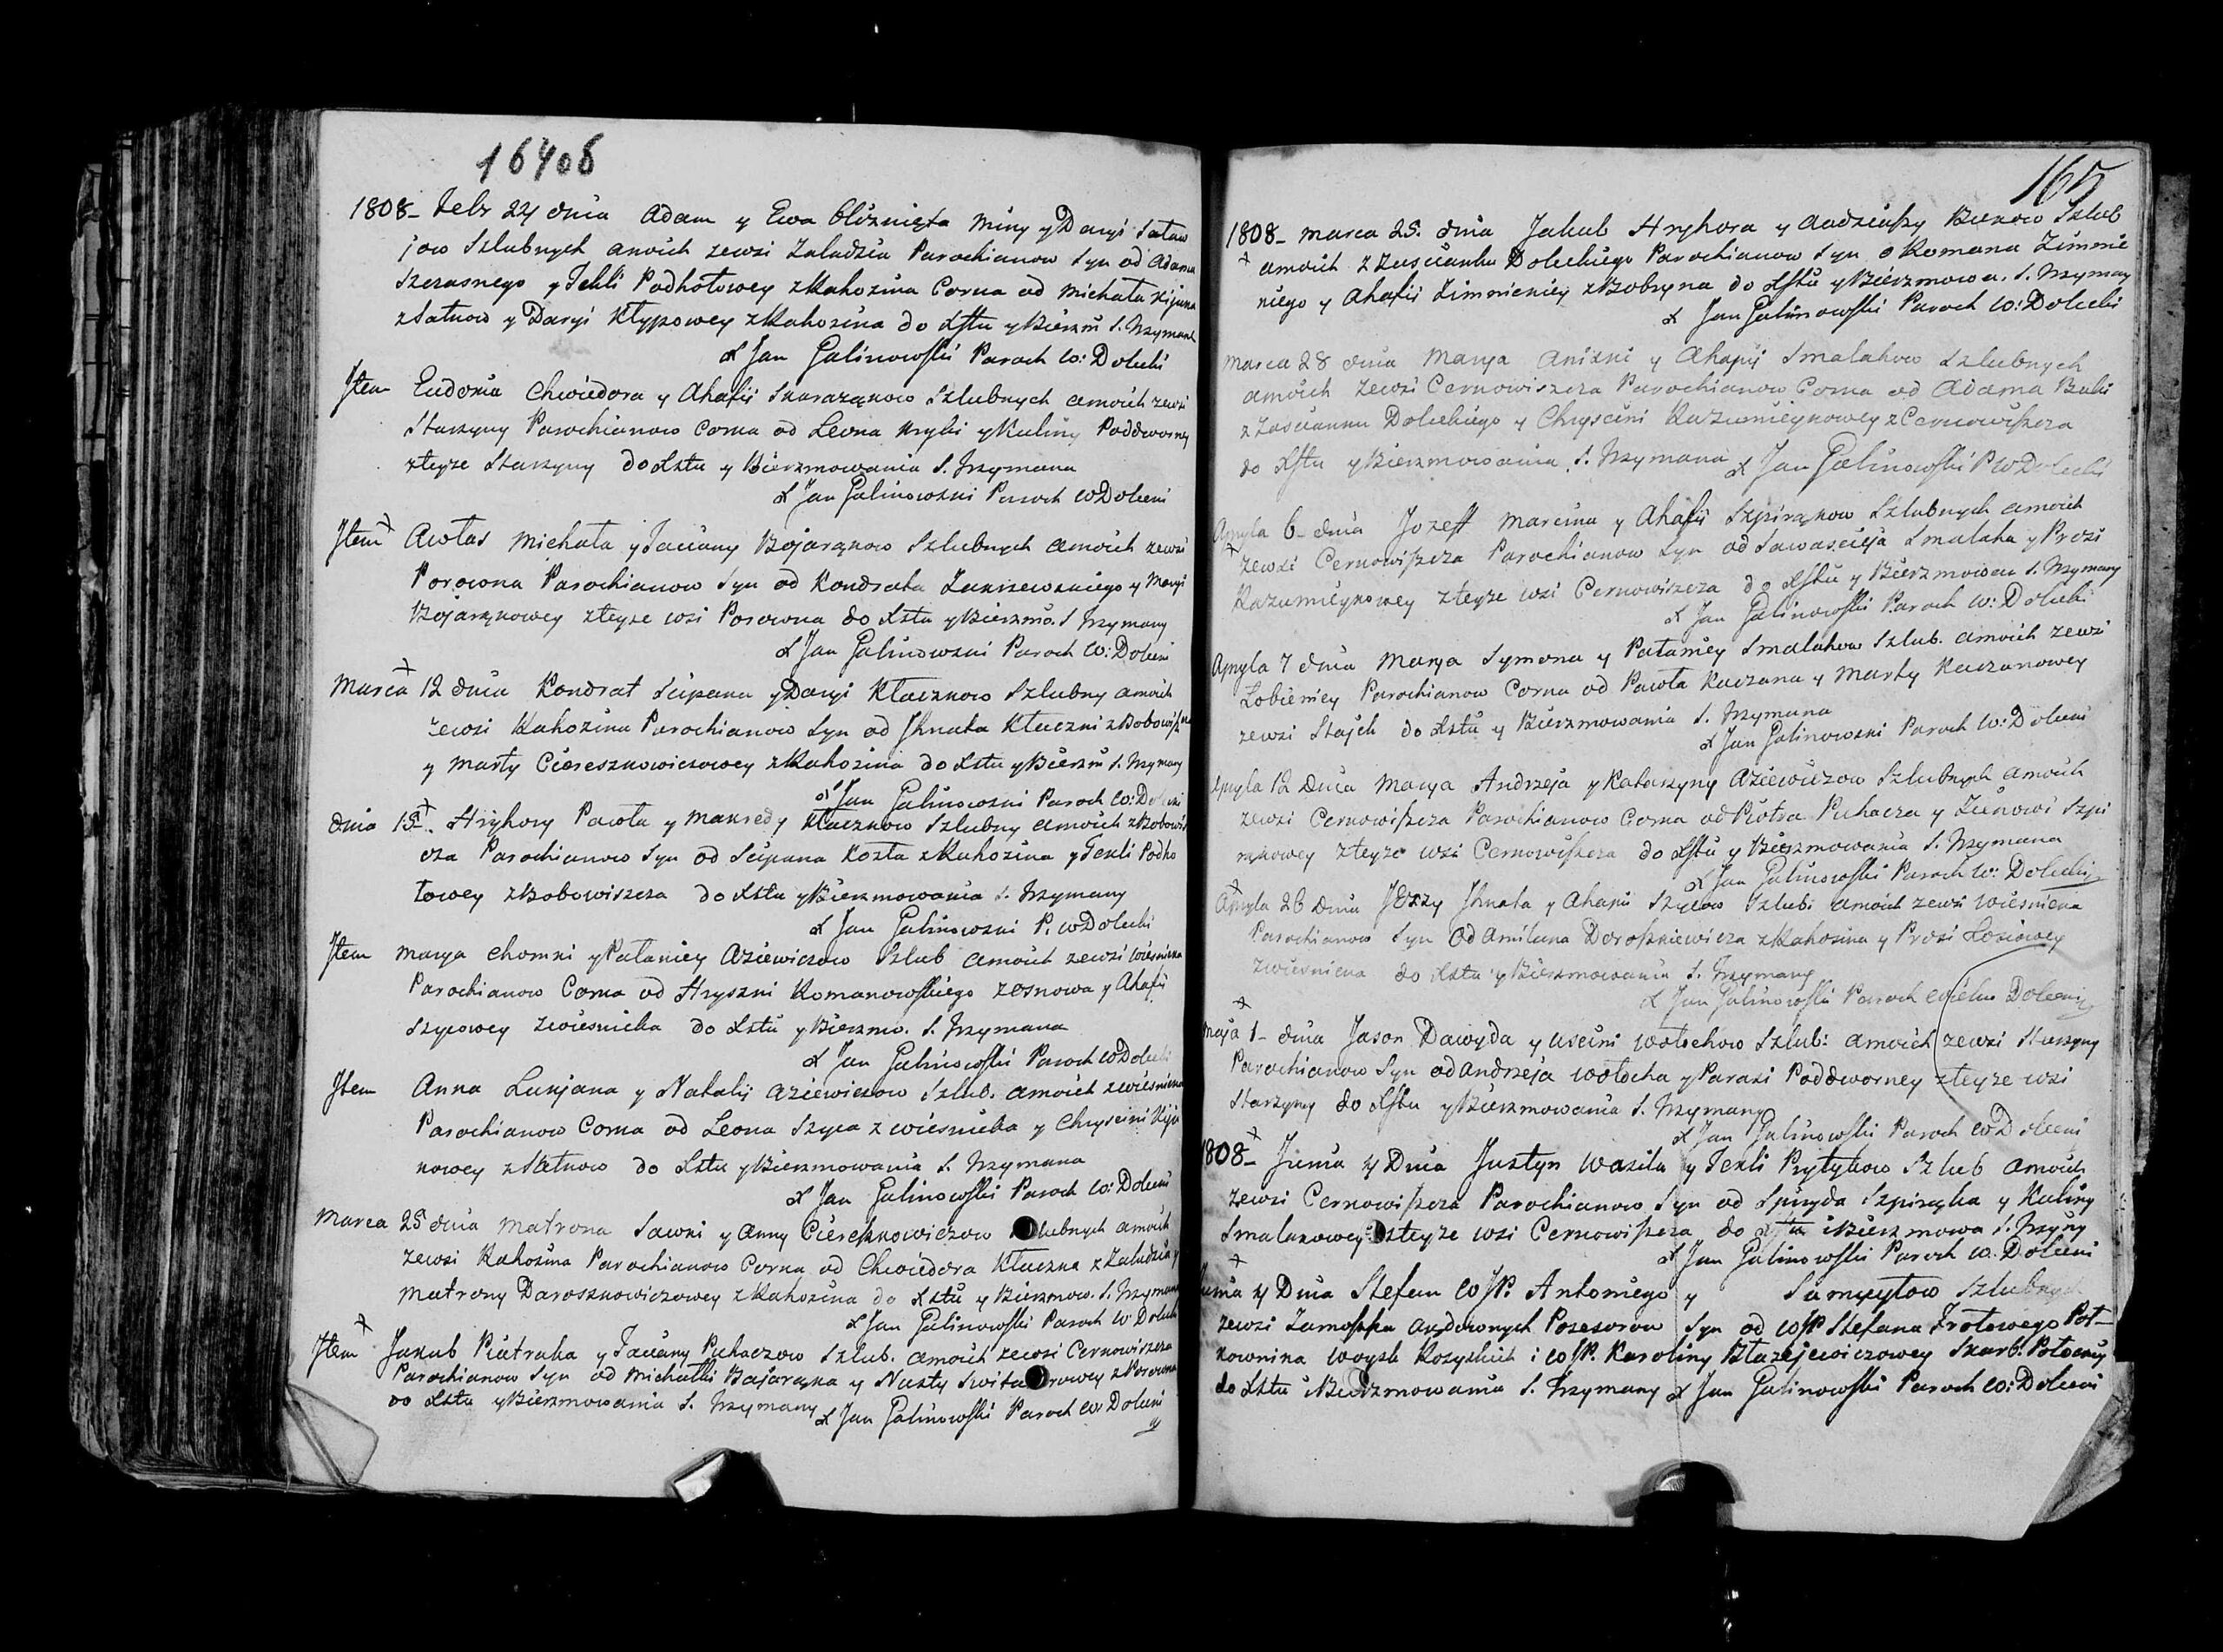 16408
1808_ Febr 24 dnia Adam y Ewa bliznięta Miny y Daryi Sataw
jow Szlubnych amoich zewsi Załadzia Parochianow Syn od Adama
Szczasnego y Tekli Podhotowey z Kahozina Corna od Michała Kijana
z Satnow y Daryi Kłypowey z Kahozina do Xstu y Bierzm S. Trzymane
X Jan Galinowski Paroch W: Dolecki
Jtem Eudonia Chwiedora y Ahafii Skarazonow Szlubnych amoich zewsi
Starzyny Parochianow Corna od Leona Kryki y Kuliny Poddworney
zteyze Starzyny do Xstu y Bierzmowania S. Trzymana
X Jan Galinowski Paroch W Doleeni
Jtem Awłas Michała y Taciany Bojarąkow Szlubnych amoich zewsi
Porowna Parochianow Syn od Kondrata Zakrzewskiego y Maryi
Bojarąkowey zteyze wsi Porowna do Xstu y Bierzmo. S Trzymany
X Jan Galinowski Paroch W: Doleeni
Marca 12 dnia Kondrat Scipana y Daryi Kłacznow Szlubny amoich
zewsi Kahozina Parochianow Syn od Jhnata Kłaczni z Bobowisz
y Marty Ciereszkowiczowey z Kahozina do Xstu y Bierzm S. Trzymany
X Jan Galinowski Paroch W: Dolecki
dnia 15. Hryhory Pawła y Makredy Kłacznow Szlubny amoich z Bobowisz
cza Parochianow Syn od Scipana Kozła z Kahozina y Tekli Podho
towey z Bobowiszcza do Xstu y Bierzmowania S. Trzymany
X Jan Galinowski P. W Dolecki
Jtem Marya Chomki y Pałaniey Aziewiczow Szlub amoich zewsi Wiesnicka
Parochianow Corna od Hryszki Romanowskiego z Osnowa y Ahafii
Szycowey z Wiesnicka do Xstu y Bierzmo. S. Trzymana
X Jan Galinowski Paroch W Dolecki
Jtem Anna Lukjana y Natalij Aziewiczow Szlub. amoich z Wiesnicka
Parochianow Corna od Leona Szyca z Wiesnicka y Chryscini Kija
nowey z Satnow do Xstu y Bierzmowania S. Trzymana
X Jan Galinowski Paroch W: Doleeni
Marca 25 dnia Matrona Sawki y Anny Ciereszkowiczow Szlubnych amoich
zewsi Kahozina Parochianow Corna od Chwiedora Kłaczka z Załadzia y
Matrony Daroszkowiczowey z Kahozina do Xstu y Bierzmow. S. Trzymana
X Jan Galinowski Paroch W Doleeni
Jtem Jakub Piatraka y Taciany Puhaczow Szlub. amoich zewsi Cernowiszcza
Parochianow Syn od Michałki Bajarąka y Nasty rowey z Porowna
do Xstu y Bierzmowania S. Trzymany X Jan Galinowski Paroch W Doleeni
165
1808_ Marca 25. dnia Jakub Hryhora y Szlub
amoich z Zascianku Doleckiego Parochianow Syn o Romana Zimnic
kiego y Ahafii Zimnickiey z Bobryna do Xstu y Bierzmowa. S. Trzymany
X Jan Galinowski Paroch W: Dolecki
Marca 28 dnia Marya Aniski y Ahapij Smalakow Szlubnych
amoich zewsi Cernowiszcza Parochianow Corna od Adama Buki
z Zascianku Doleckiego y Chryscini Kazumieykowey z Cernowiszcza
do Xstu y Bierzmowania S. Trzymana X Jan Galinowski P W Dolecki
Apryla 6_ dnia Jozeff Marcina y Ahafij Szpirąkow Szlubnych amoich
zewsi Cernowiszcza Parochianow Syn od Sawasciєja Smalaka y Prosi
Kazumieykowey zteyze wsi Cernowiszcza do Xstu y Bierzmowan S. Trzymany
X Jan Galinowski Paroch W: Dolecki
Apryla 7 dnia Marya Symona y Pałaniey Smalakow Szlub. amoich zewsi
Parochianow Corna od Pawła Kaczana y Marty Kaczanowey
zewsi Stajek do Xstu y Bierzmowania S. Trzymana
X Jan Galinowski Paroch W: Doleeni
Apryla 12 dnia Marya Andrzeja y Katarzyny Aziewiczow Szlubnych amoich
zewsi Cernowiszcza Parochianow Corna od Piotra Puhacza y Zienowi Szpi
rąkowey zteyze wsi Cernowiszcza do Xstu y Bierzmowania S. Trzymana
X Jan Galinowski Paroch W: Dolecki
Apryla 26 dnia Jerzy Jhnata y Ahapii Szycow Szlub: amoich zewsi Wiesnicka
Parochianow Syn od Amiluna Daroszkiewicza z Kahozina y Prosi Łosiowey
z Wiesnicka do Xstu y Bierzmowania S. Trzymany
X Jan Galinowski Paroch Wielko Doleeni
Maja 1_ dnia Jason Dawyda y Uscini Wołochow Szlub: amoich zewsi Starzyny
Parochianow Syn od Andrzeja Wołocha y Paraski Poddworney zteyze wsi
Starzyny do Xstu y Bierzmowania S. Trzymany
X Jan Galinowski Paroch W Doleeni
1808_ Junia 4 Dnia Justyn Wasila y Tekli Prytykow Szlub amoich
zewsi Cernowiszcza Parochianow Syn od Spiryda Szpirąka y Kuliny
Smalakowey zteyze wsi Cernowiszcza do Xstu i Bierzmowa S. Trzyny
X Jan Galinowski Paroch W: Doleeni
Junia 4 Dnia Stefan W JP. Antoniego y Szlubnych
zewsi Zamoszka Posesorow Syn od W JP Stefana Zrotowego Poł_
kownika Woysk Rosyskich i W JP. Karoliny Błazejewiczowey Skarb. Połockiy
do Xstu i Bierzmowania S. Trzymany X Jan Galinowski Paroch W: Doleeni